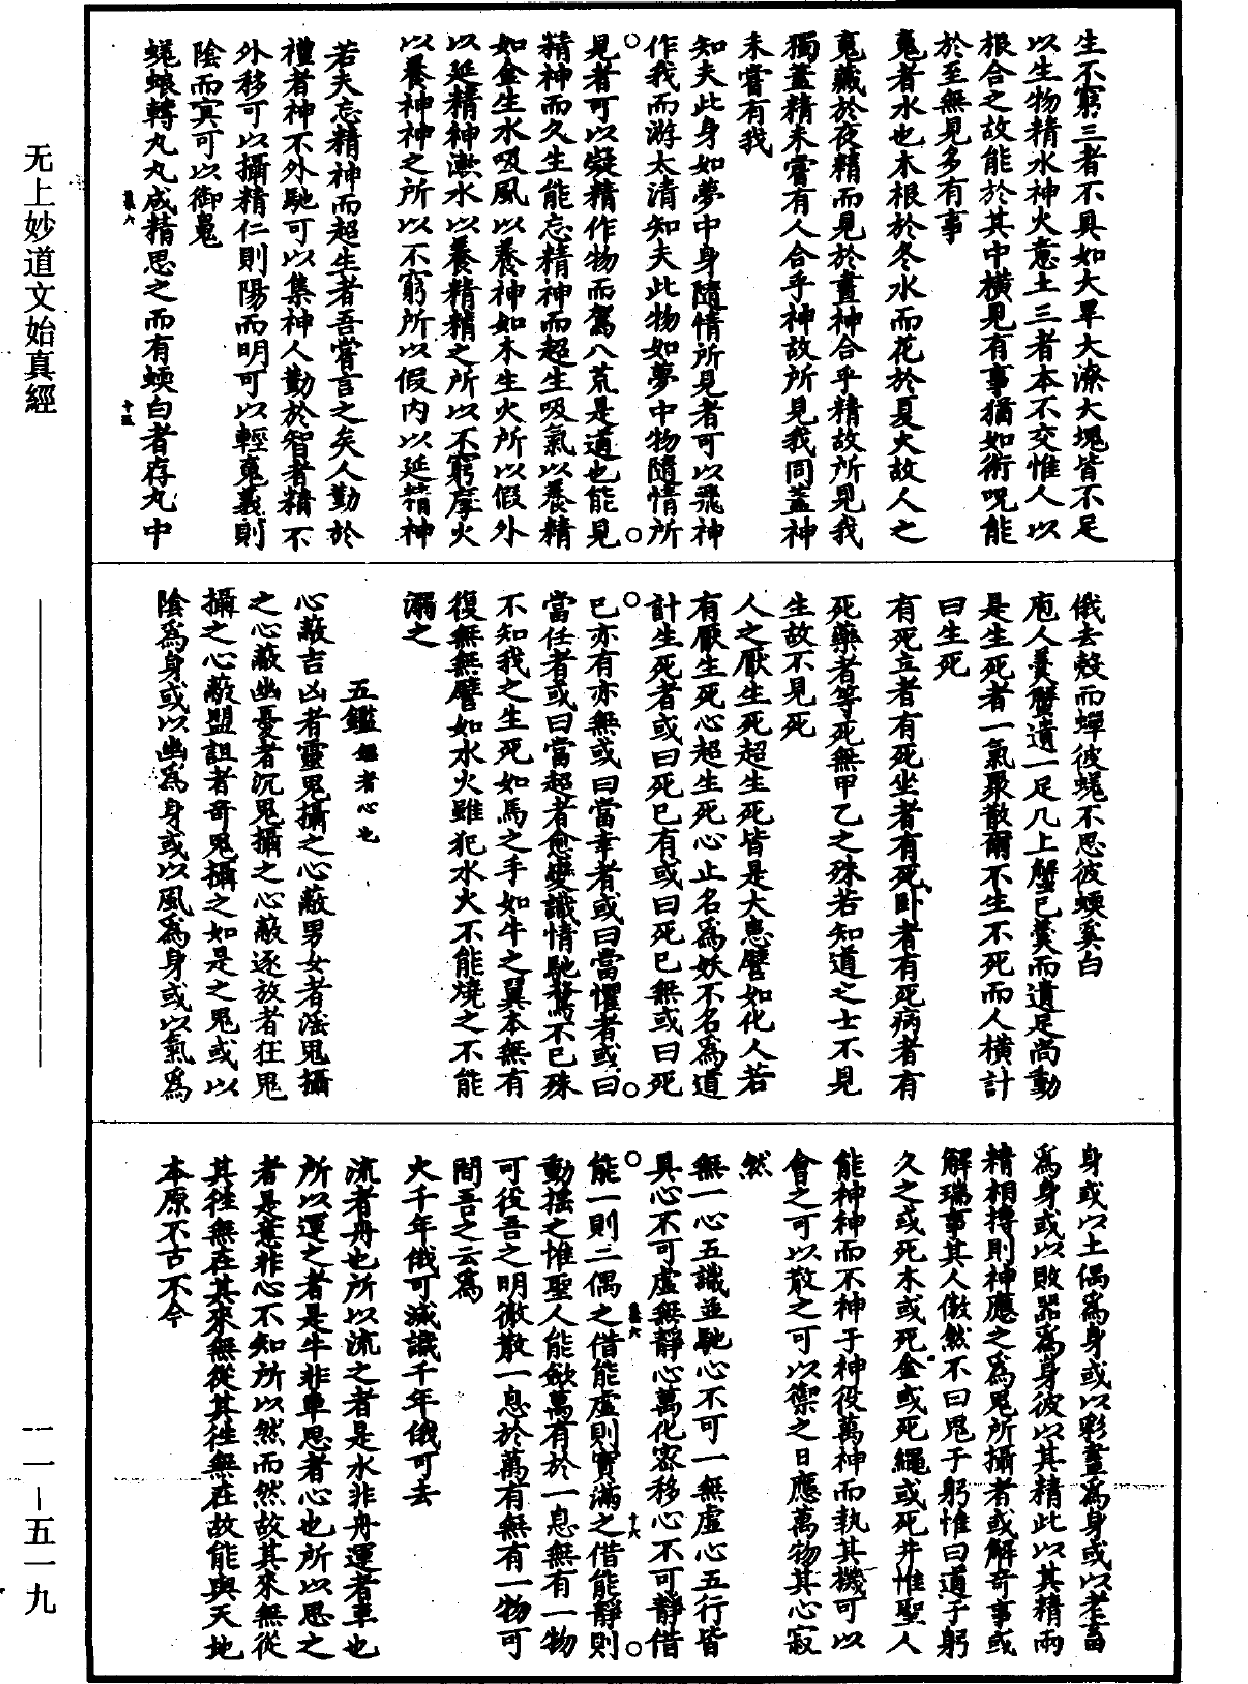 生不窮三者不具如大旱大潦大塊皆不足
以生物精水神火意土三者本不交惟人以
根合之故能於其中橫見有事猶如術呪能
於至無見多有事
䰟者木也木根於冬水而花於夏火故人之
䰟藏於夜精而見於晝神合乎精故所見我
獨蓋精未嘗有人合乎神故所見我同蓋神
未嘗有我
知夫此身如夢中身隨情所見者可以飛神
作我而游太清知夫此物如夢中物隨情所
見者可以凝精作物而駕八荒是道也能見
精神而久生能忘精神而超生吸氣以養精
如金生水吸風以養神如木生火所以假外
以延精神漱水以養精精之所以不窮摩火
以養神神之所以不窮所以假內以延精神
若夫忘精神而超生者吾嘗言之矣人勤於
禮者神不外馳可以集神人勤於智者精不
外移可以攝精仁則陽而明可以輕䰟義則
陰而冥可以御鬽
蜣蜋轉丸丸成精思之而有蝡白者存丸中
俄去殼而蟬彼蜣不思彼蝡奚白
庖人羹蟹遺一足几上蟹已羹而遺足尚動
是生死者一氣聚散爾不生不死而人橫計
曰生死
有死立者有死坐者有死臥者有死病者有
死藥者等死無甲乙之殊若知道之士不見
生故不見死
人之厭生死超生死皆是大患譬如化人若
有厭生死心超生死心止名爲妖不名爲道
計生死者或曰死已有或曰死已無或曰死
已亦有亦無或曰當幸者或曰當懼者或曰
當任者或曰當超者愈變識情馳騖不已殊
不知我之生死如馬之手如牛之翼本無有
復無無譬如水火雖犯水火不能燒之不能
溺之
五鑑鑑者心也
心蔽吉凶者靈鬼攝之心蔽男女者淫鬼攝
之心蔽幽憂者沉鬼攝之心蔽逐放者狂鬼
攝之心蔽盟詛者奇鬼攝之如是之鬼或以
陰爲身或以幽爲身或以風爲身或以氣爲
身或以土偶爲身或以彩畫爲身或以老畜
爲身或以敗器爲身彼以其精此以其精兩
精相搏則神應之爲鬼所攝者或解奇事或
解瑞事其人傲然不曰鬼于躬惟曰道于躬
久之或死木或死金或死繩或死井惟聖人
能神神而不神于神役萬神而執其機可以
會之可以散之可以禦之日應萬物其心寂
然
無一心五識並馳心不可一無虛心五行皆
具心不可虛無靜心萬化密移心不可靜借
能一則二偶之借能虛則實滿之借能靜則
動搖之惟聖人能斂萬有於一息無有一物
可役吾之明徹散一息於萬有無有一物可
間吾之云爲
火千年俄可滅識千年俄可去
流者舟也所以流之者是水非舟運者車也
所以運之者是牛非車思者心也所以思之
者是意非心不知所以然而然故其來無從
其往無在其來無從其往無在故能與天地
本原不古不今
无上妙道文始真經
一一—五一九